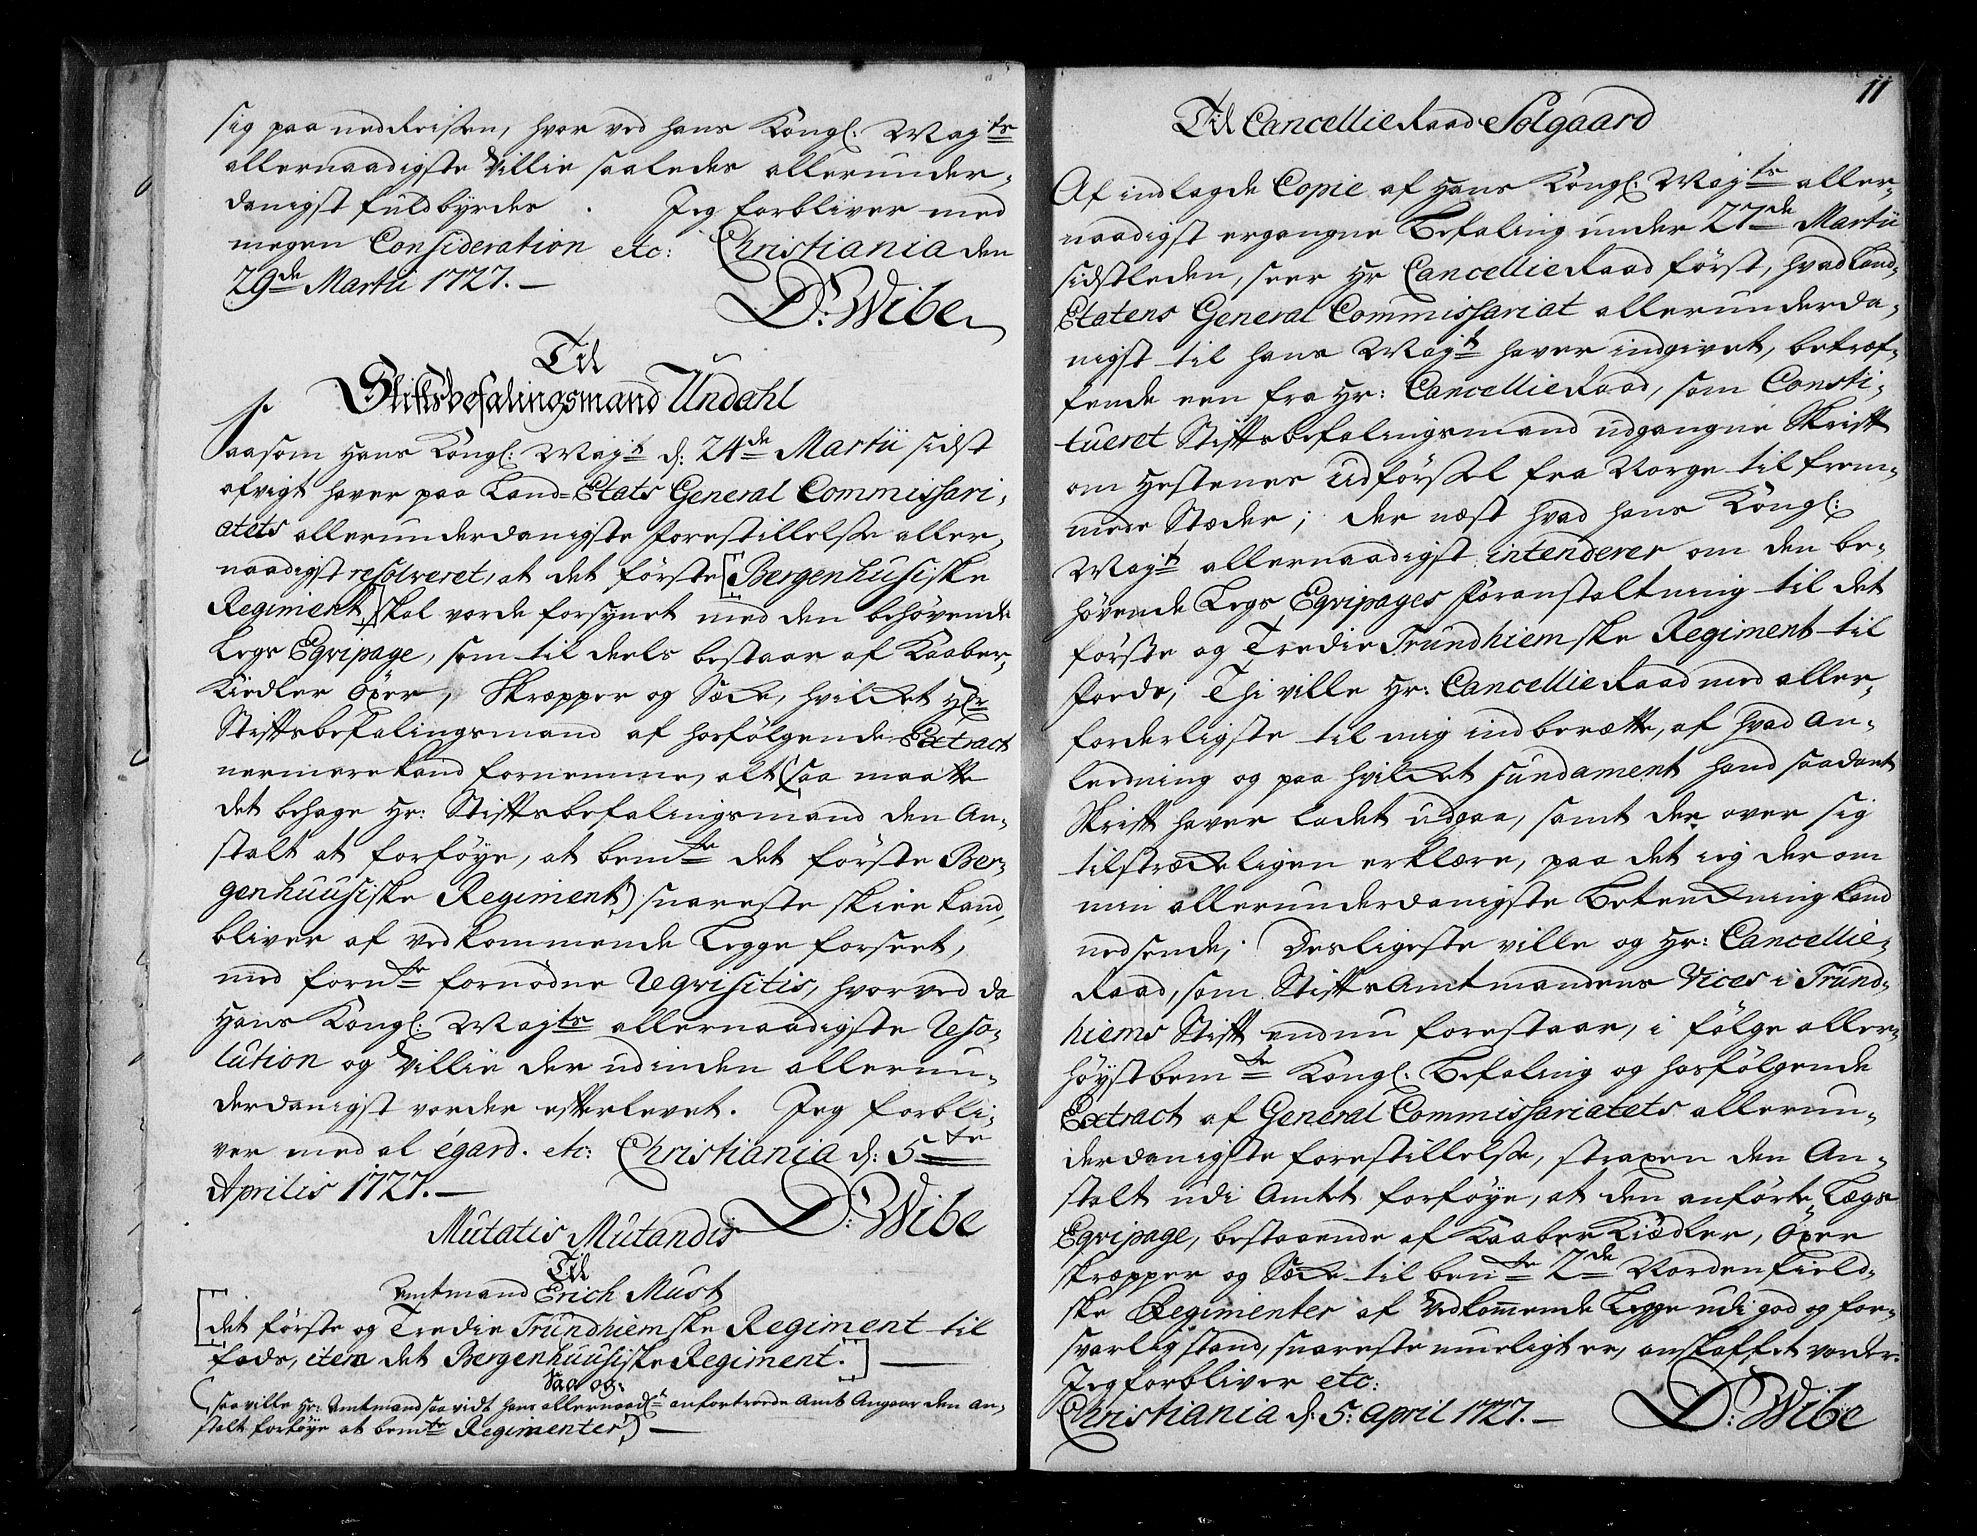 sig paa nedReisen, hvor ved hans Kongl: Mayts
allernaadigste Villie saaledes allerunder-
danigst fuldbyrdes. Jeg forbliver med
megen Consideration etc: Christiania den
29de Martii 1727.—
D: Wibe
Til
Stiftsbefalingsmand Undahl
Saasom Hans Kongl: Mayt d: 24de Martii sidst
afvigt haver paa Land-Etats General Commissari-
atets allerunderdanigste forestillelse aller-
naadigst resolveret, at det første [Bergenhusiske
Regiment,] skal vorde forsynet med den behøvende
Legs Eqvipage, som til deels bestaar af Kaaber-
Kiedler Öxer, Skrepper og Secke, hvilcket Hr
Stiftsbefalingsmand af hosfølgende Extract
nermere kand fornemme, alt (saa maatte
det behage Hr: Stiftsbefalingsmand den An-
stalt at forføye, at bemte det første Ber-
genhuusiske Regiment,) snareste skee kand,
bliver af vedkommende Legge forseet,
med fornte fornødne Reqvisitis, hvorved da
Hans Kongl: Mayts allernaadigste Reso-
lution og Villie der udinden allerun-
derdanigst vorder efterlevet. Jeg forbli-
ver med al égard. etc: Christiania d: 5te
Aprilis 1727.—
D: Wibe
Mutatis Mutandis
Til
Amtmand Erich Must
[det første og Tredie Trundhiemske Regiment til
fods, item det Bergenhuusiske Regiment.]—
Saa og:
(saa ville Hr: Amtmand saa vidt hans allernaadt anfortroede Amt Angaar den An-
stalt forføye at bemte Regimenter,)—
11
Til Cancellie Raad Solgaard
Af indlagde Copie af Hans Kongl: Mayts aller-
naadigst ergangne Befaling under 27de Martii
sidstleden, seer Hr Cancellie Raad først, hvad Land-
Etatens General Commissariat allerunderda-
nigst til hans Mayt haver indgivet, betref-
fende een fra Hr: Cancellie Raad, som Consti-
tueret Stiftsbefalingsmand udgangne Skrift
om Hestenes Udførsel fra Norge til frem-
mede Stæder; der næst hvad hans Kongl:
Mayt allernaadigst intenderer om den be-
høvende Legs Eqvipages foranstaltning til det
første og Tredie Trundhiemske Regiment til
foeds; Thi ville Hr: Cancellie Raad med aller-
forderligste til mig indberætte, af hvad An-
ledning og paa hvilcket fundament hand saadant
Skrift haver ladet udgaa, samt der over sig
tilstræckeligen erklære, paa det ieg der om
min allerunderdanigste Betenckning kand
nedsende; Desligeste ville og Hr: Cancellie-
Raad, som Stifts Amtmandens Vices i Trund-
hiems Stift endnu forestaar, i følge aller-
høystbemte Kongl. Befaling og hosfølgende
Extract af General Commissariatets allerun-
derdanigste forestillelse, straxen den An-
stalt udi Amtet forføye, at den anførte Lægs
Eqvipage, bestaaende af Kaaber Kiædler, Öxer
skrepper og Secke til bemte 2de Nordenfield-
ske Regimenter af vedkommende Legge udi god og for-
svarlig stand, snareste mueligt er, anskaffet vorder.
Jeg forbliver etc:
Christiania d: 5: April 1727.—
D: Wibe